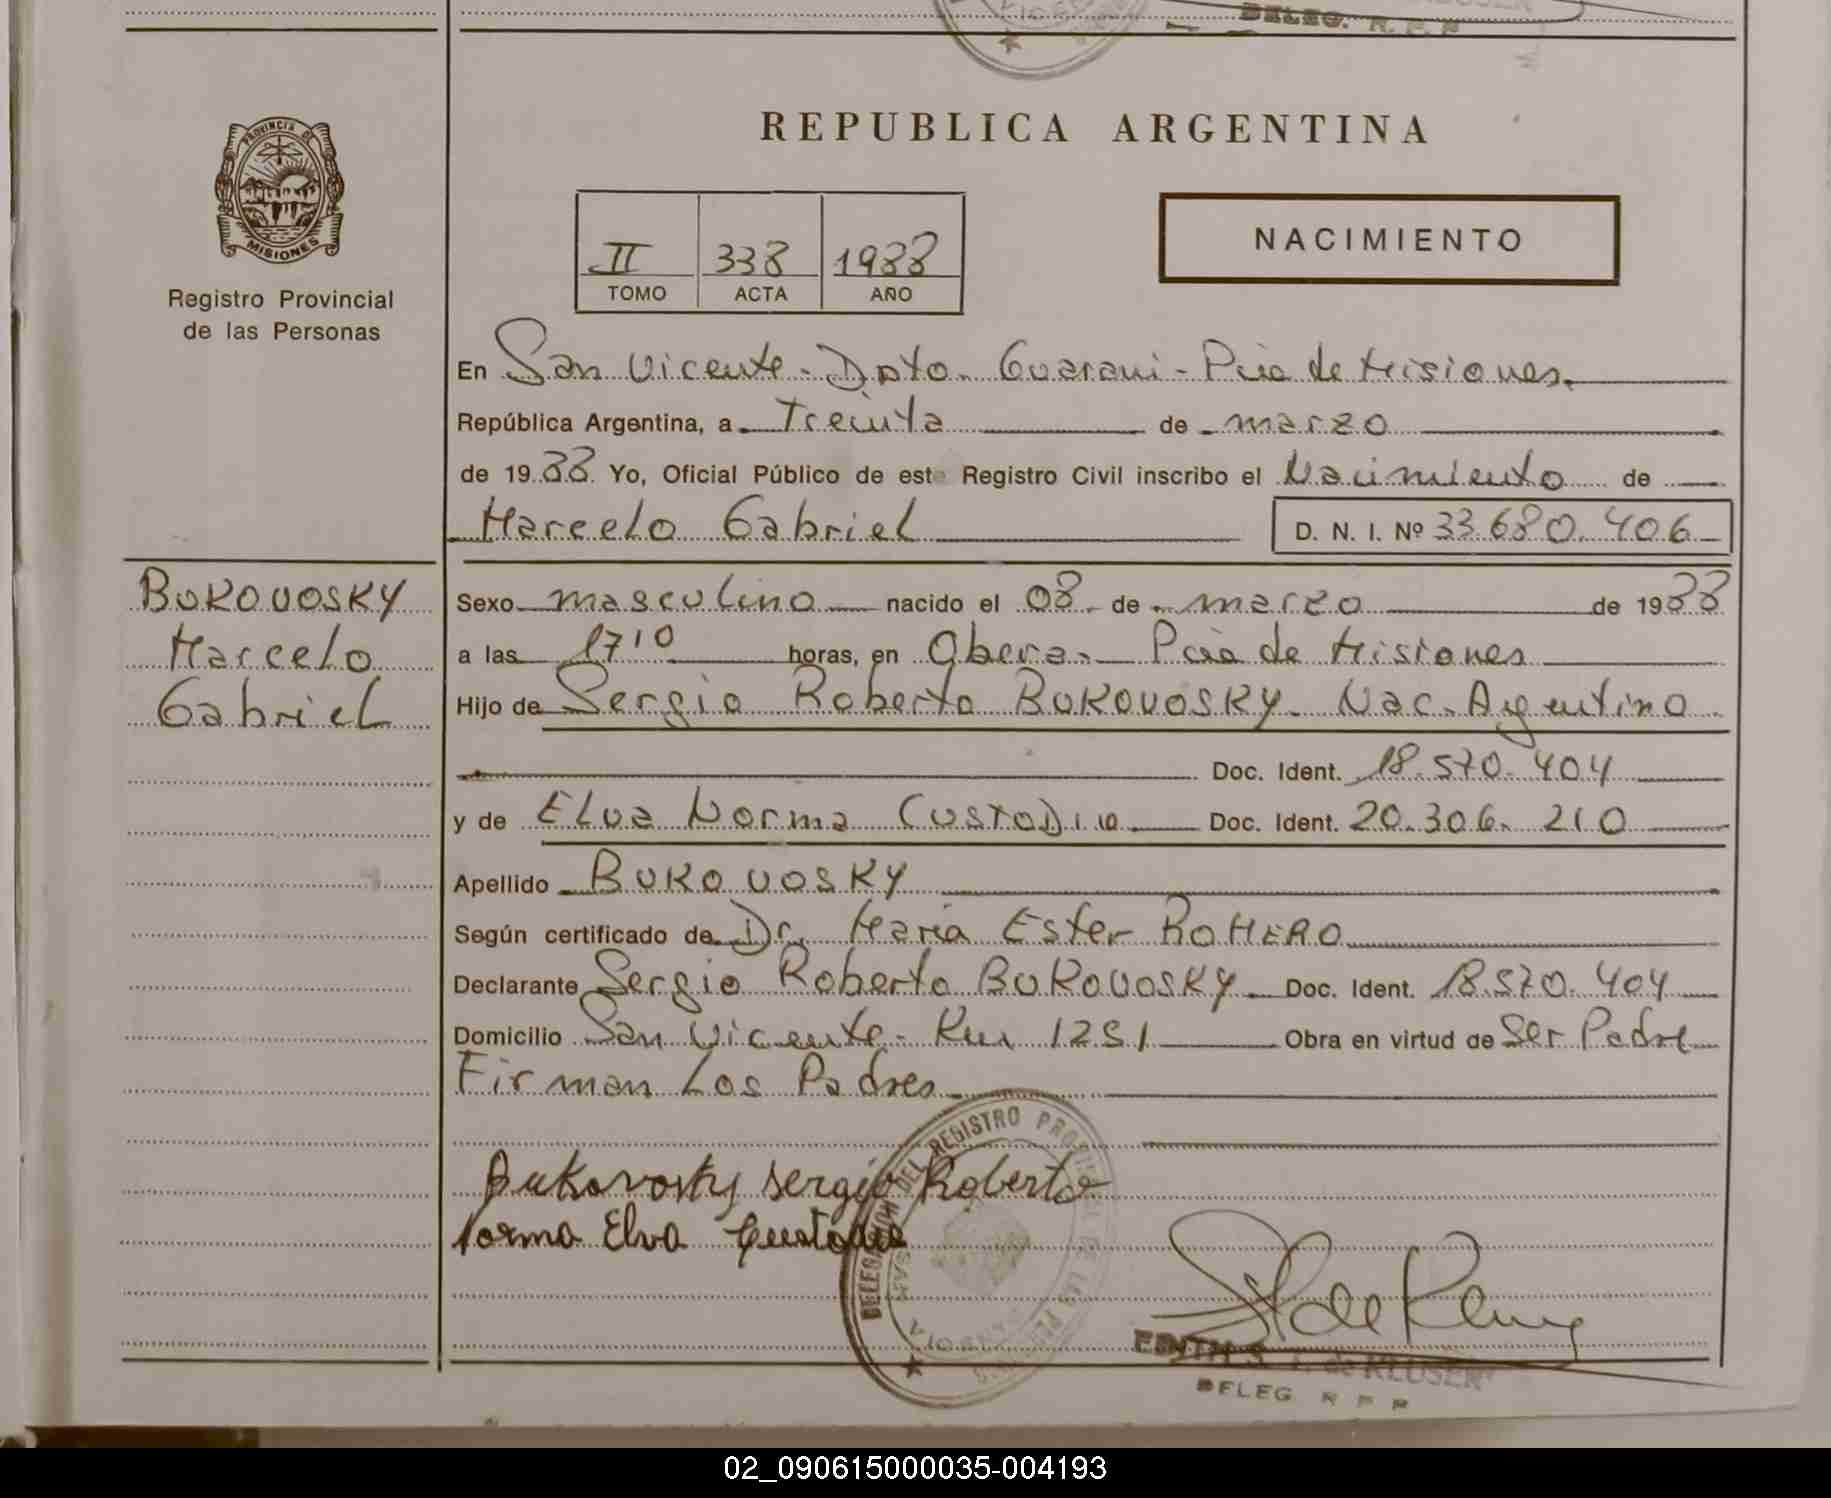 DELEG. R. P. P
PROVINCIA DE
MISIONES
Registro Provincial
de las Personas
REPUBLICA ARGENTINA
II 338 1988
TOMO ACTA AÑO
NACIMIENTO
En San Vicente - Dpto. Guarani - Pcia de Misiones.
República Argentina, a Treinta de marzo
de 19 88 Yo, Oficial Público de este Registro Civil inscribo el Nacimiento de
Marcelo Gabriel D. N. I. Nº 33.680.406
BUKOVOSKY
Marcelo
Gabriel
Sexo masculino nacido el 08 de marzo de 1988
a las 1710 horas, en Obera - Pcia de Misiones
Hijo de Sergio Roberto BUKOVOSKY. Nac. Argentino.
Doc. Ident. 18.570.404
y de Elva Norma CUSTODIO Doc. Ident. 20.306.210
Apellido BUKOVOSKY
Según certificado de Dr. Maria Ester ROMERO
Declarante Sergio Roberto BUKOVOSKY Doc. Ident. 18.570.404
Domicilio San Vicente - Km 1251 Obra en virtud de Ser Padre
Firman Los Padres
Bukovosky Sergio Roberto
Norma Elva Custodio
DELEGACION DEL REGISTRO
SAN VICENTE
EDITH S. de KLUSER
DELEG R P P
02_090615000035-004193